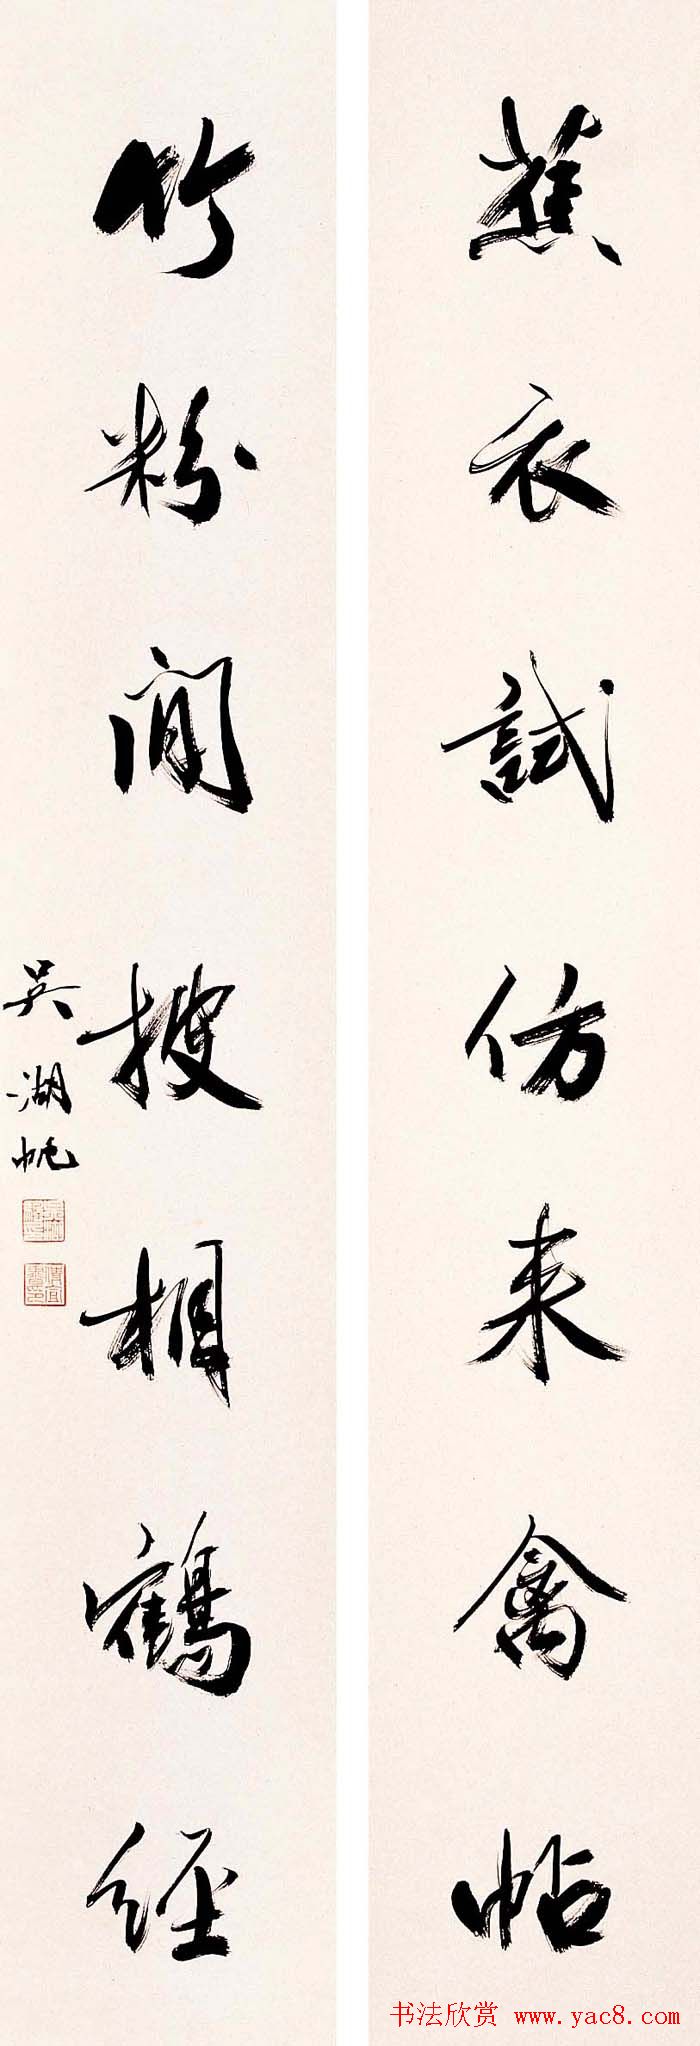 蕉衣試仿来禽帖
竹粉閒搜相鶴經
吳湖帆
书法欣赏 www.yac8.com